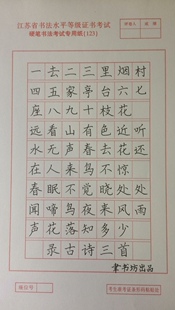 江苏省书法水平等级证书考试
硬笔书法考试专用纸[123]
一去二三里烟村
四五家亭台六七
座八九十枝花
远看山有色近听
水无声春去花还
在人来鸟不惊
春眠不觉晓处处
闻啼鸟夜来风雨
声花落知多少
录古诗三首
聿书坊出品
座位号